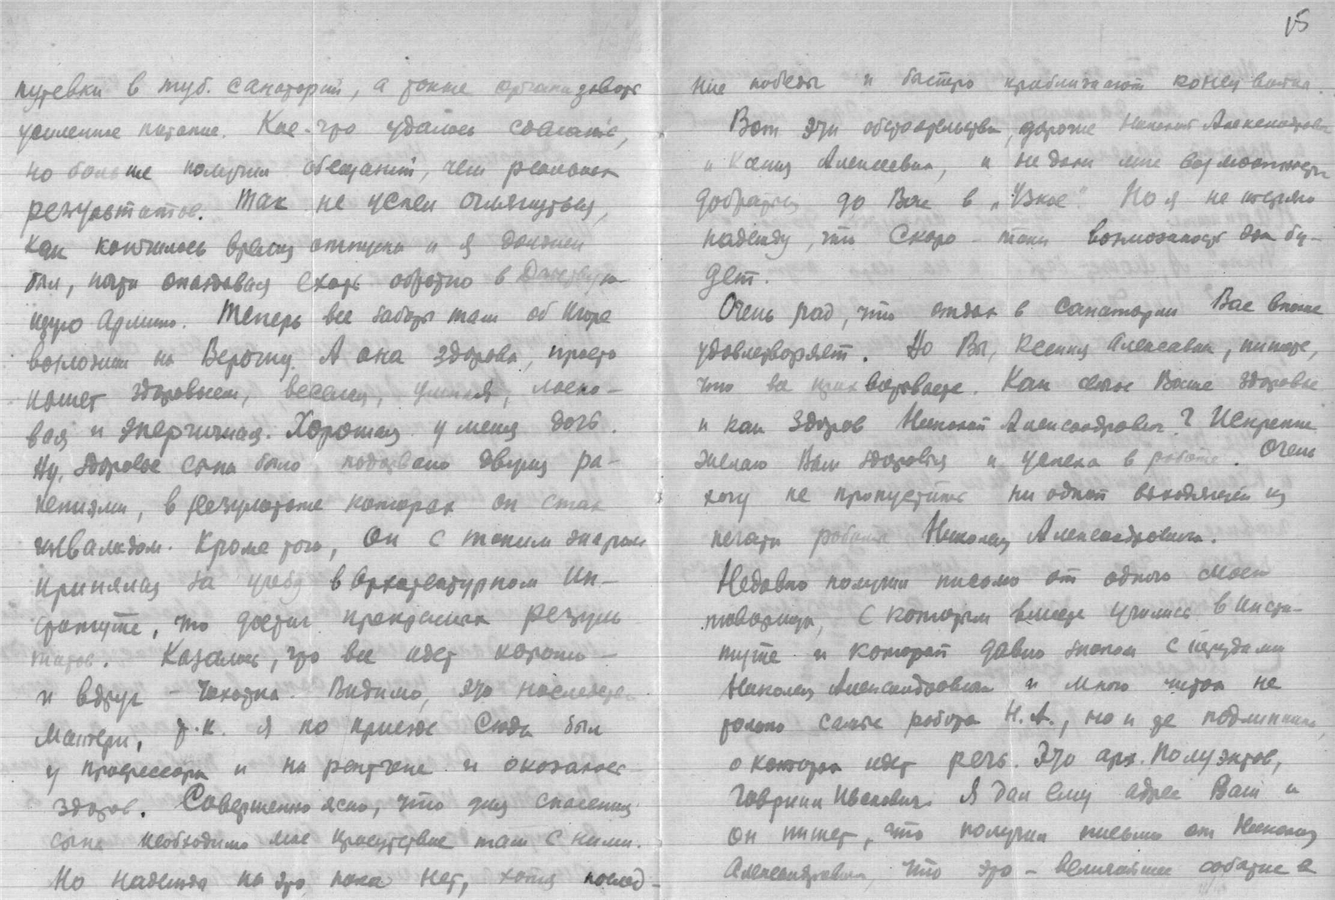 15
путевки в туб. санаторий, а также организовать
усиленное питание. Кое-что удалось сделать,
но больше получил обещаний, чем реальных
результатов. Так не успел оглянуться,
как кончилось время отпуска и я должен
был, чтоб опаздывая ехать обратно в
армию. Теперь все заботы там об Игоре
возложил на Верочку. А она здорова, просто
пышет здоровьем, веселая, умная, ласко-
вая и энергичная. Хорошая у меня дочь.
Ну, здоровье сына было подорвано двумя ра-
нениями, в результате которых он стал
инвалидом. Кроме того, он с таким жаром
принялся за учебу в Архитектурном Ин-
ституте, что достиг прекрасных резуль-
татов. Казалось, что все идет хорошо -
и вдруг - чахотка. Видимо, это наследие
матери, т.к. я по приезде сюда был
у профессора и на рентгене и оказался
здоров. Совершенно ясно, что для спасения
сына необходимо мое присутствие там с ними.
Но надежды на это пока нет, хотя послед-
ние победы и быстро приближают конец войны.
Вот эти обстоятельства, дорогие Николай Александрович
и Ксения Алексеевна, и не дали мне возможности
добраться до Вас в „Узкое“. Но я не теряю
надежду, что скоро-таки возможность эта бу-
дет.
Очень рад, что отдых в санатории Вас вполне
удовлетворяет. Но Вы, Ксения Алексеевна, пишете,
что все прихварываете. Как сейчас Ваше здоровье
и как здоров Николай Александрович? Искренне
желаю Вам здоровья и успеха в работе. Очень
хочу не пропустить ни одной выходящей из
печати работы Николая Александровича.
Недавно получил письмо от одного моего
товарища, с которым вместе учились в Инсти-
туте и который давно знаком с трудами
Николая Александровича и много читал не
только самые работы Н.А., но и те подлинники,
о которых идет речь. Это арх. Полуэктов,
Гавриил Иванович. Я дал ему адрес Ваш и
он пишет, что получил письмо от Николая
Александровича, что это - величайшее событие в